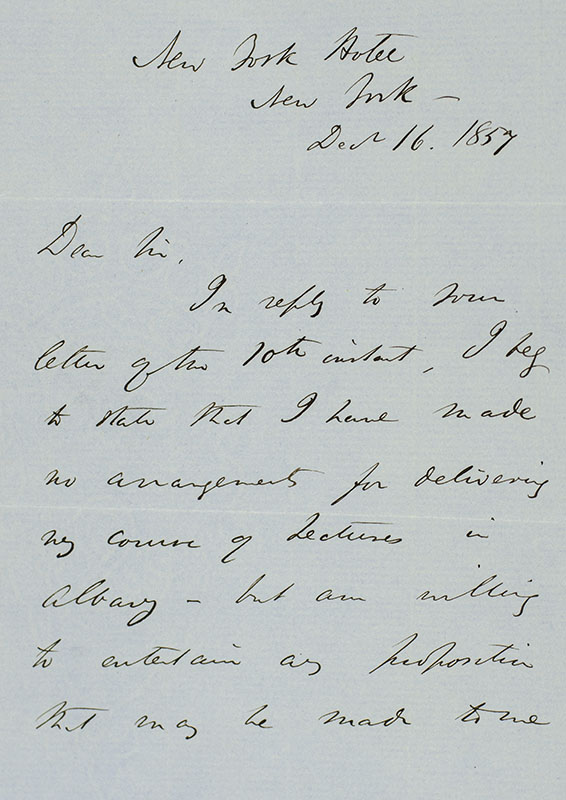 New York Hotel
New York –
Decr 16. 1857
Dear Sir,
In reply to your
letter of the 10th instant, I beg
to state that I have made
no arrangements for delivering
my course of Lectures in
Albany – but am willing
to entertain any proposition
that may be made to me